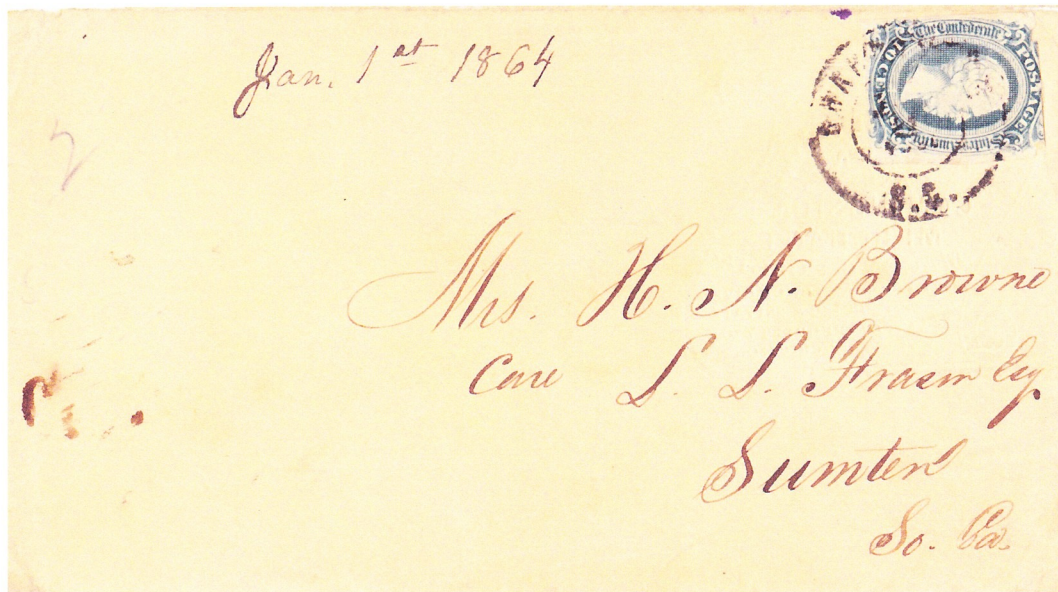 Jan. 1st 1864
The Confederate States America
POSTAGE
TEN CENTS
S.C.
Mrs. H. N. Browne
Care L. L. Fraser Esq.
Sumter
So. Ca.